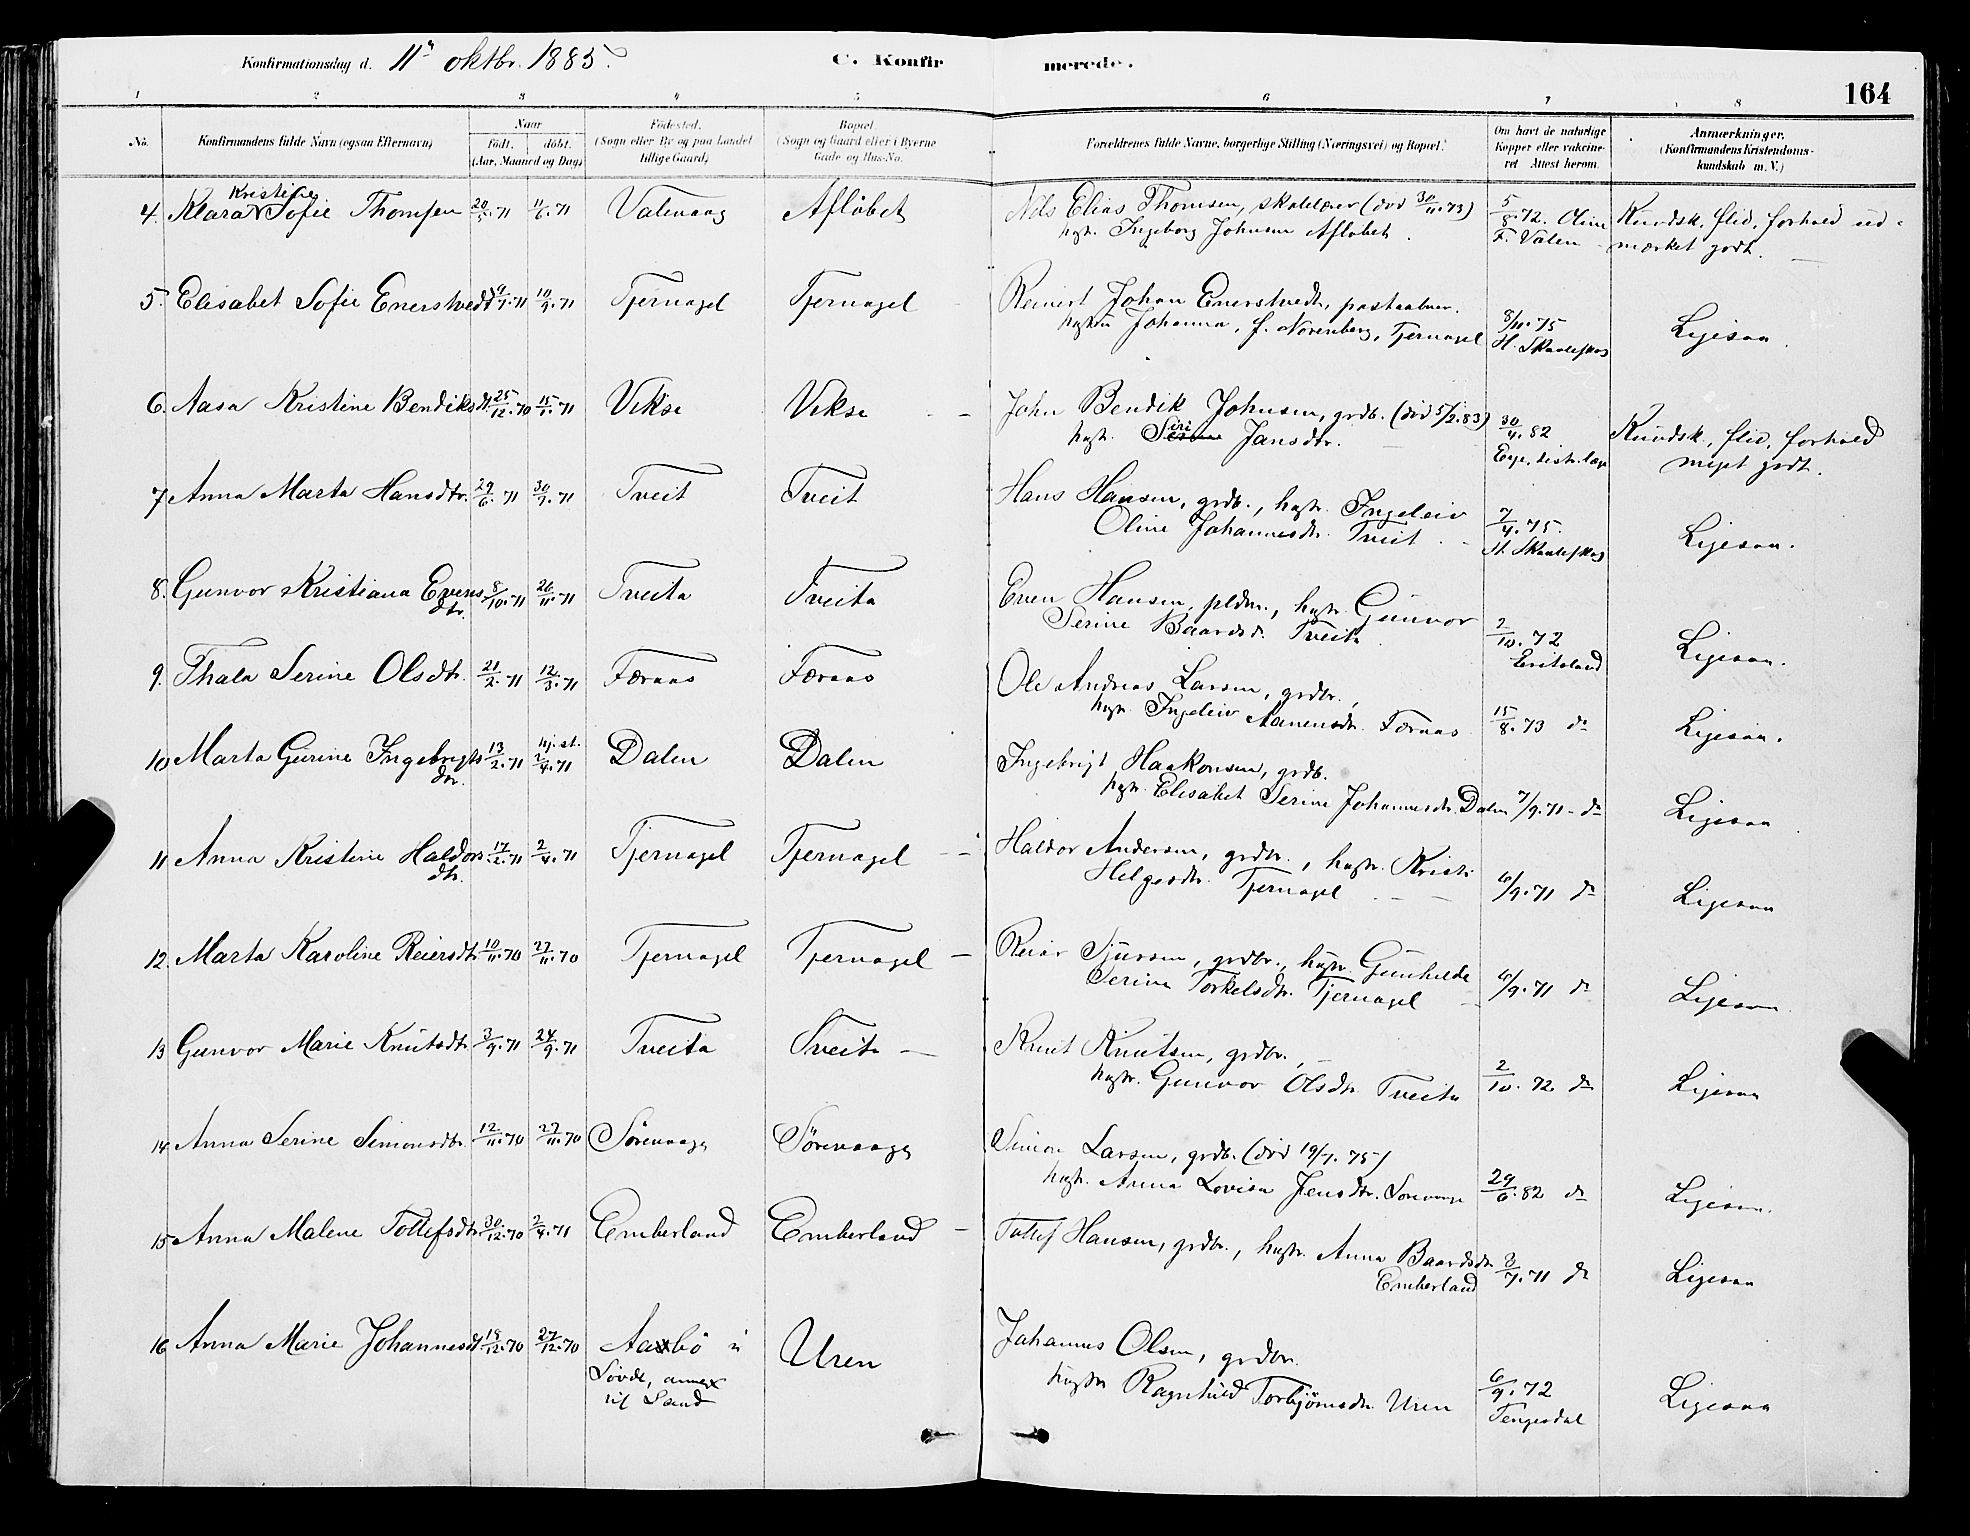 Konfirmationsdag d. 11te oktbr. 1885.
C. Konfirmerede.
164
1 2 3 4 5 6 7 8
No.
Konfirmandens fulde Navn (ogsaa Efternavn)
Naar
født. døbt.
(Aar, Maaned og Dag)
Fødested.
(Sogn eller By og paa Landet tillige Gaard)
Bopæl.
(Sogn og Gaard eller i Byerne Gade og Hus-No.
Forældrenes fulde Navne, borgerlige Stilling (Næringsvei) og Bopæl.
Om havt de naturlige Kopper eller vakcineret Attest herom.
Anmærkninger.
(Konfirmandens Kristendomskundskab m. V.)
Kristine
4. Klara Sofie Thomsen 20/5.71 11/6.71 Valevaag Afløbet Nils Elias Thomsen, skolelærer (død 30/11.73) 5/8.72. Oline Kundsk. flid, forhold ud-
hustr. Ingeborg Johnsen Afløbet. F. Valen mærket godt.
5. Elisabet Sofie Enerstvedt 9/7.71 10/9.71 Tjernagel Tjernagel Reinert Johan Enerstvedt, postaabner.
hustru Johanna, f. Norenberg, Tjernagel 8/11.75 Ligesaa.
H. Skaalefkog
6. Aasa Kristine Bendiksdt. 25/12.70 15/1.71 Vikse Vikse John Bendik Johnsen, grdb. (død 5/2.83) 30/4.82 Kundsk., flid, forhold
hustr. Siri Jansdtr. Eye, distr.læge meget godt.
7. Anna Marta Hansdtr. 29/6.71 30/7.71 Tveit Tveit Hans Hansen, grdb., hustr. Ingeleiv 7/4.75.
Oline Johannesdtr. Tveit. H. Skaalefkog Ligesaa.
8. Gunvor Kristiana Evens 8/10.71 26/11.71 Tveita Tveita Even Hansen, pldm., hustr. Gunvor
dtr. Serine Baardsd. Tveita. 2/10.72 Ligesaa.
9. Thala Serine Olsdtr. 21/2.71 12/3.71 Færaas Færaas Ole Andreas Larsen, grdbr.,
hustr. Ingeleiv Aanensdtr. Færaas 15/8.73 do Ligesaa.
10. Marta Gurine Ingebrigts 13/2.71 hj. st. 2/4.71 Dalen Dalen Ingebrigt Haakonsen, grdb.
dtr. hustr. Elisabet Serine Johannesdtr. Dalen 7/9.71 do Ligesaa
11 Anna Kristine Haldors 17/2.71 2/4.71 Tjernagel Tjernagel Haldor Andersen, grdbr., hustr. Kristi
dtr. Helgesdtr. Tjernagel 6/9.71 do Ligesaa
12. Marta Karoline Reiersdtr 10/11.70 27/11.70 Tjernagel Tjernagel Reier Sjursen, grdbr., hustr. Gunhilde
Serine Torkelsdtr. Tjernagel 6/9.71 do Ligesaa.
13 Gunvor Marie Knutsdtr 3/9.71 24/9.71 Tveita Tveita Knut Knutsen, grdbr.,
hustr. Gunvor Olsdtr. Tveita 2/10.72 do Ligesaa
14 Anna Serine Simonsdtr. 12/11.70 27/11.70 Sørevaage Sørevaage Simon Larsen, grdb. (død 19/7.75)
hustr. Anna Lovisa Jensdtr. Sørevaage 29/6.82 do Ligesaa.
15 Anna Malene Tollefsdtr. 30/12.70 2/4.71 Emberland Emberland Tollef Hansen, grdbr., hustr. Anna Baardsdtr
Emberland 3/7.71 do Ligesaa
16 Anna Marie Johannesdt 18/12.70 27/12.70 Aaxbø i Uren Johannes Olsen, grdbr.
Søvde, annex hustru Ragnhild Torbjørnsdtr. Uren 6/9.72 Ligesaa
til Sand Tengesdal